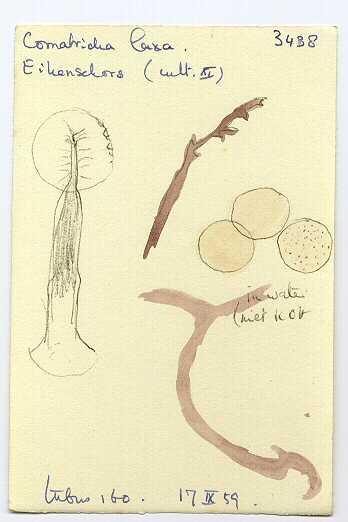 Comatricha laxa. 3438
Eikenschors (cult. IV)
in water
(niet KOH
tubus 160. 17 IX 59.